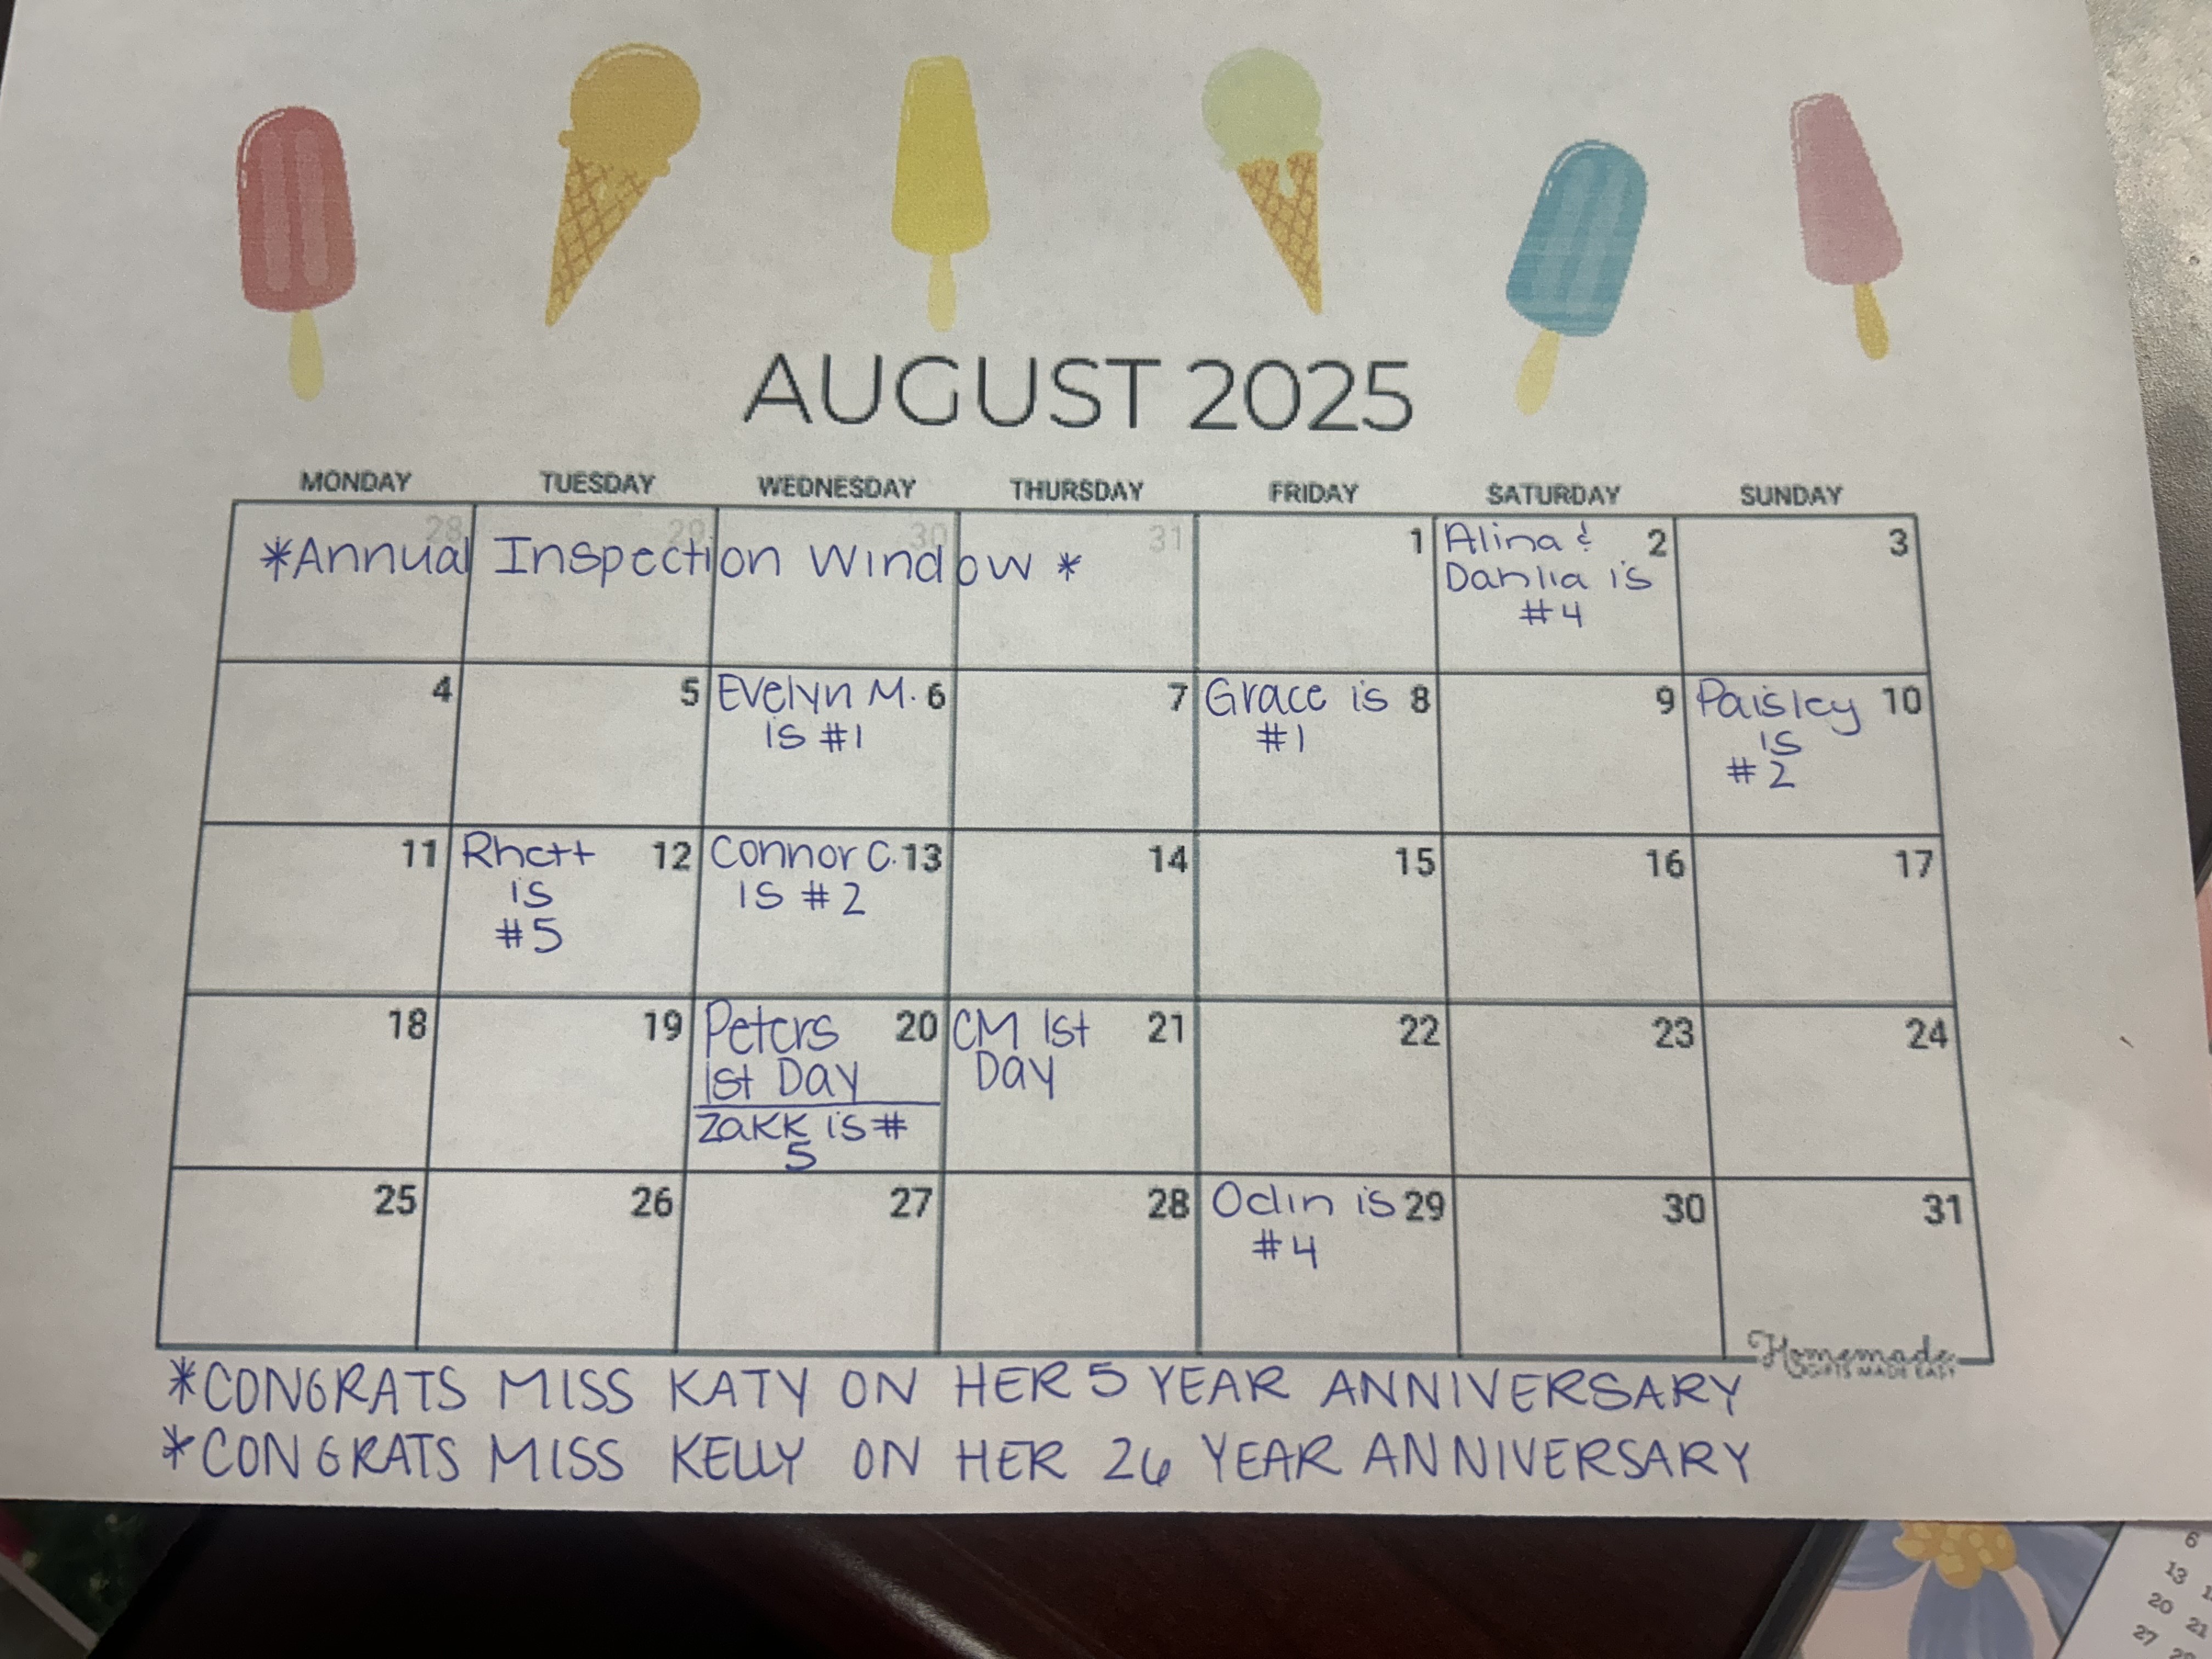 AUGUST 2025
MONDAY TUESDAY WEDNESDAY THURSDAY FRIDAY SATURDAY SUNDAY
28 29 30 31 1 2 3
*Annual Inspection Window *
Alina &
Dahlia is
#4
4 5 6 7 8 9 10
Evelyn M.
is #1
Grace is
#1
Paisley
is
#2
11 12 13 14 15 16 17
Rhett
is
#5
Connor C.
is #2
18 19 20 21 22 23 24
Peters
1st Day
Zakk is #
5
CM 1st
Day
25 26 27 28 29 30 31
Odin is
#4
Homemade
GIFTS MADE EASY
*CONGRATS MISS KATY ON HER 5 YEAR ANNIVERSARY
*CONGRATS MISS KELLY ON HER 26 YEAR ANNIVERSARY
6
13
20 21
27